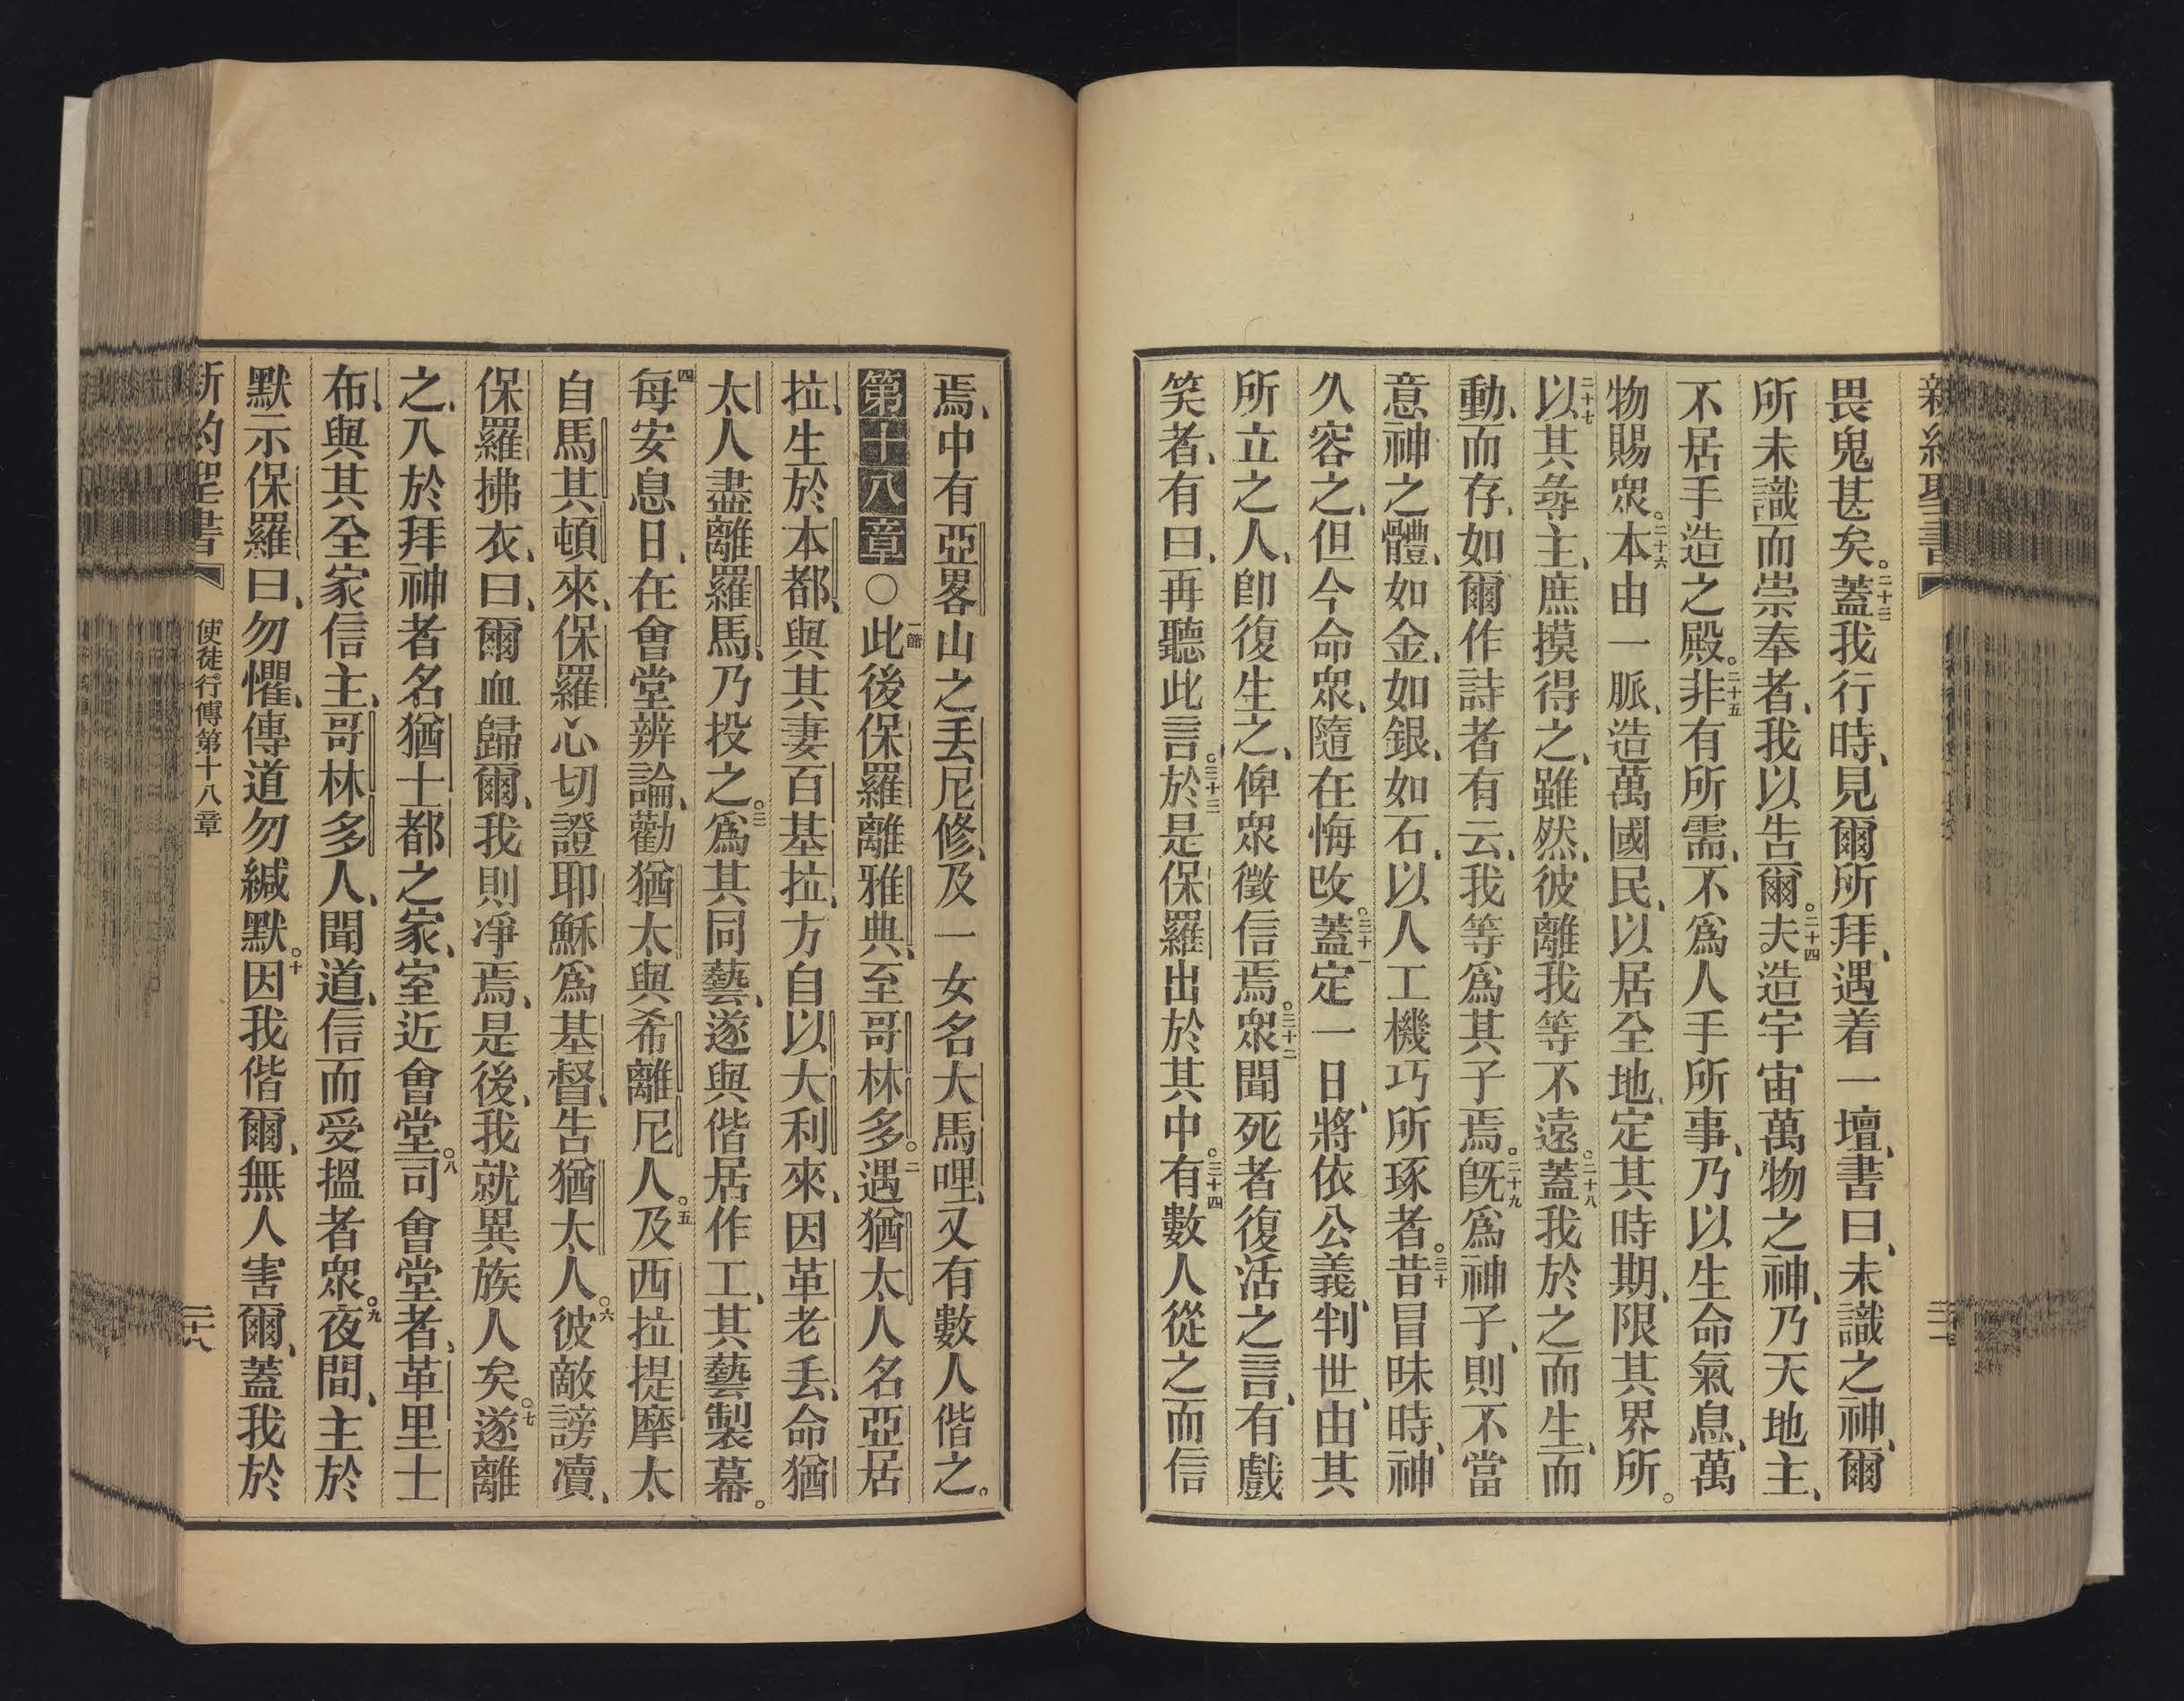 畏鬼甚矣。二十三蓋我行時、見爾所拜、遇着一壇、書曰、未識之神、爾
所未識而崇奉者、我以吿爾。二十四夫造宇宙萬物之神、乃天地主、
不居手造之殿。二十五非有所需、不爲人手所事、乃以生命氣息、萬
物賜衆。二十六本由一脈、造萬國民、以居全地、定其時期、限其界所。
二十七以其尋主、庶摸得之、雖然、彼離我等不遠。二十八蓋我於之而生、而
動、而存、如爾作詩者有云、我等爲其子焉。二十九旣爲神子、則不當
意神之體、如金、如銀、如石、以人工機巧所琢者。三十昔冒昧時、神
久容之、但今命衆、隨在悔改。三十一蓋定一日、將依公義、判世、由其
所立之人、卽復生之、俾衆徵信焉。三十二衆聞死者復活之言、有戲
笑者、有曰、再聽此言。三十三於是保羅出於其中。三十四有數人從之而信
焉、中有亞畧山之丢尼修、及一女名大馬哩、又有數人偕之。
第十八章〇一節此後保羅離雅典、至哥林多。二遇猶太人名亞居
拉、生於本都、與其妻百基拉、方自以大利來、因革老丢、命猶
太人盡離羅馬、乃投之。三爲其同藝、遂與偕居作工、其藝製幕。
四每安息日、在會堂辨論、勸猶太與希離尼人。五及西拉提摩太
自馬其頓來、保羅心切證耶穌爲基督、吿猶太人。六彼敵謗凟、
保羅拂衣、曰、爾血歸爾、我則淨焉、是後、我就異族人矣。七遂離
之、入於拜神者名猶士都之家、室近會堂。八司會堂者、革里士
布、與其全家信主、哥林多人、聞道、信而受搵者衆。九夜間、主於
默示保羅曰、勿懼、傳道勿緘默。十因我偕爾、無人害爾、蓋我於
新約聖書 使徒行傳第十八章 二十八